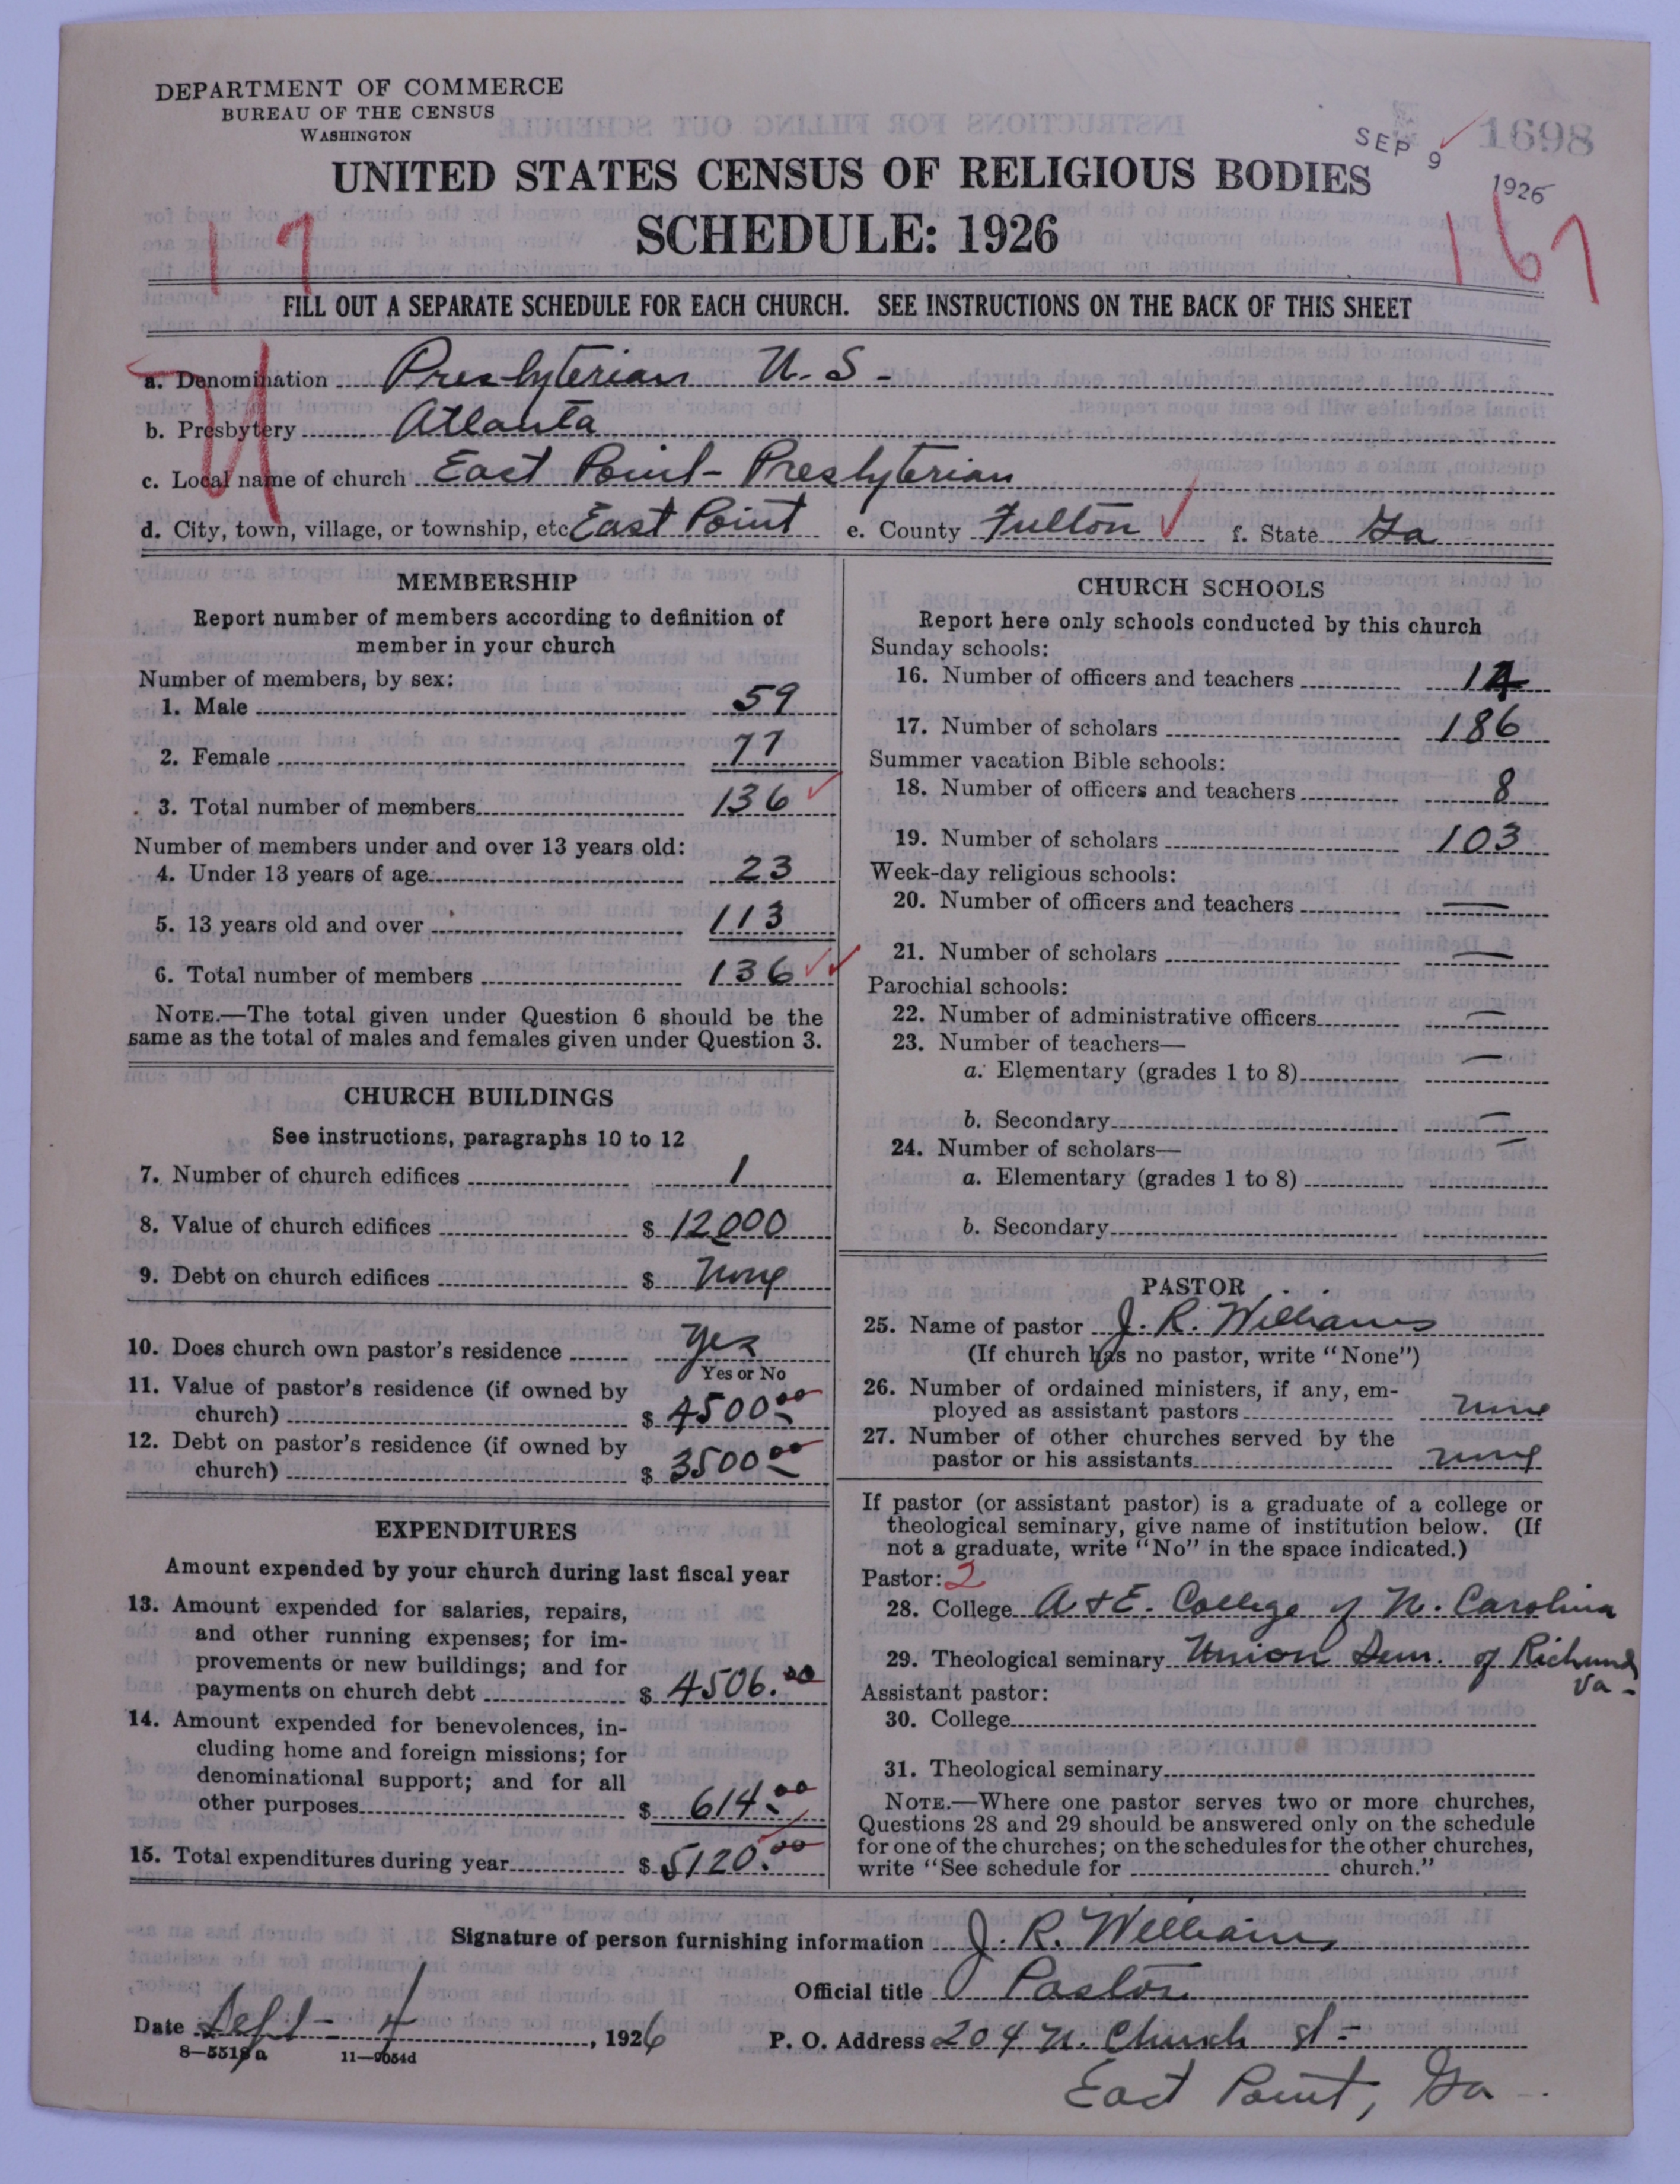 DEPARTMENT OF COMMERCE
BUREAU OF THE CENSUS
WASHINGTON
SEP 9 1926
1698
UNITED STATES CENSUS OF RELIGIOUS BODIES
SCHEDULE: 1926
17
167
FILL OUT A SEPARATE SCHEDULE FOR EACH CHURCH. SEE INSTRUCTIONS ON THE BACK OF THIS SHEET
a. Denomination Presbyterian U. S.
b. Presbytery Atlanta
c. Local name of church East Point- Presbyterian
d. City, town, village, or township, etc East Point e. County Fulton f. State Ga
MEMBERSHIP
Report number of members according to definition of
member in your church
Number of members, by sex:
1. Male 59
2. Female 77
3. Total number of members 136
Number of members under and over 13 years old:
4. Under 13 years of age 23
5. 13 years old and over 113
6. Total number of members 136
NOTE.—The total given under Question 6 should be the
same as the total of males and females given under Question 3.
CHURCH BUILDINGS
See instructions, paragraphs 10 to 12
7. Number of church edifices 1
8. Value of church edifices $ 12000
9. Debt on church edifices $ none
10. Does church own pastor's residence Yes
Yes or No
11. Value of pastor's residence (if owned by
church) $ 4500.00
12. Debt on pastor's residence (if owned by
church) $ 3500.00
EXPENDITURES
Amount expended by your church during last fiscal year
13. Amount expended for salaries, repairs,
and other running expenses; for im-
provements or new buildings; and for
payments on church debt $ 4506.00
14. Amount expended for benevolences, in-
cluding home and foreign missions; for
denominational support; and for all
other purposes $ 614.00
15. Total expenditures during year $ 5120.00
CHURCH SCHOOLS
Report here only schools conducted by this church
Sunday schools:
16. Number of officers and teachers 14
17. Number of scholars 186
Summer vacation Bible schools:
18. Number of officers and teachers 8
19. Number of scholars 103
Week-day religious schools:
20. Number of officers and teachers —
21. Number of scholars —
Parochial schools:
22. Number of administrative officers —
23. Number of teachers—
a. Elementary (grades 1 to 8) —
b. Secondary —
24. Number of scholars— —
a. Elementary (grades 1 to 8)
b. Secondary
PASTOR
25. Name of pastor J. R. Williams
(If church has no pastor, write "None")
26. Number of ordained ministers, if any, em-
ployed as assistant pastors none
27. Number of other churches served by the
pastor or his assistants none
If pastor (or assistant pastor) is a graduate of a college or
theological seminary, give name of institution below. (If
not a graduate, write "No" in the space indicated.)
Pastor: 2
28. College A & E. College of N. Carolina
29. Theological seminary Union Sem. of Richmond
Va-
Assistant pastor:
30. College
31. Theological seminary
NOTE.—Where one pastor serves two or more churches,
Questions 28 and 29 should be answered only on the schedule
for one of the churches; on the schedules for the other churches,
write "See schedule for church."
Signature of person furnishing information J. R. Williams
Official title Pastor
Date Sept- 4, 1926 P. O. Address 204 N. Church St-
8—5518a 11—9054d
East Point, Ga-